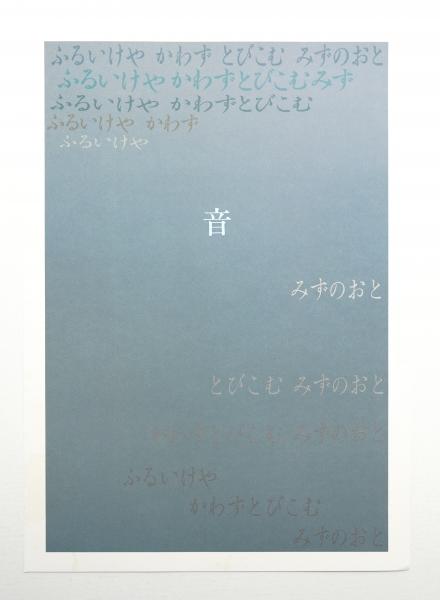 ふるいけや かわず とびこむ みずのおと
ふるいけや かわずとびこむみず
ふるいけや かわずとびこむ
ふるいけや かわず
ふるいけや
音
みずのおと
とびこむ みずのおと
かわずとびこむ みずのおと
ふるいけや
かわずとびこむ
みずのおと